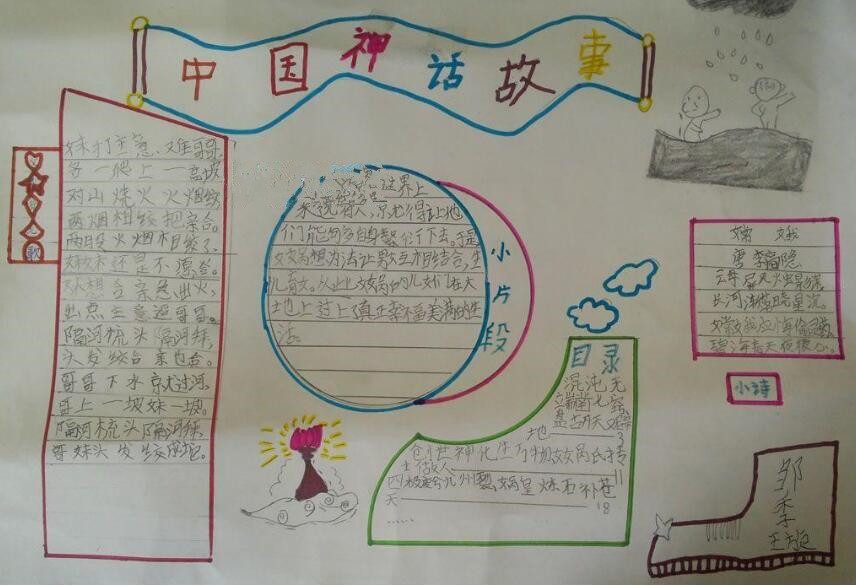 中国神话故事
妹妹打主意难哥哥
各一爬上一高坡
对山烧火火烟绞
两烟相绞把亲合。
两股火烟相绞了,
妹妹还是不愿合。
出点主意逗哥哥。
隔河梳头隔河拜,
头发绞合亲也合。
哥哥下水就过河
哥上一坡妹一坡。
隔河梳头隔河拜,
歌
世界上
来说有人,就也得让他
们能够多自身繁衍下去。于是
女娲想办法让男女互相结合,生
儿育女。从此女娲的儿女们在大
地上过上了真正幸福美满的生
活。
小片段
目录
混沌无
地——3
创世神化生万物女娲氏抟
土做人——11
四极废今九州裂娲皇炼石补苍
天——18
……
嫦娥
唐 李商隐
云母屏风烛影深
长河渐落晓星沉
嫦娥应悔偷灵药
碧海青天夜夜心。
小诗
邹
季